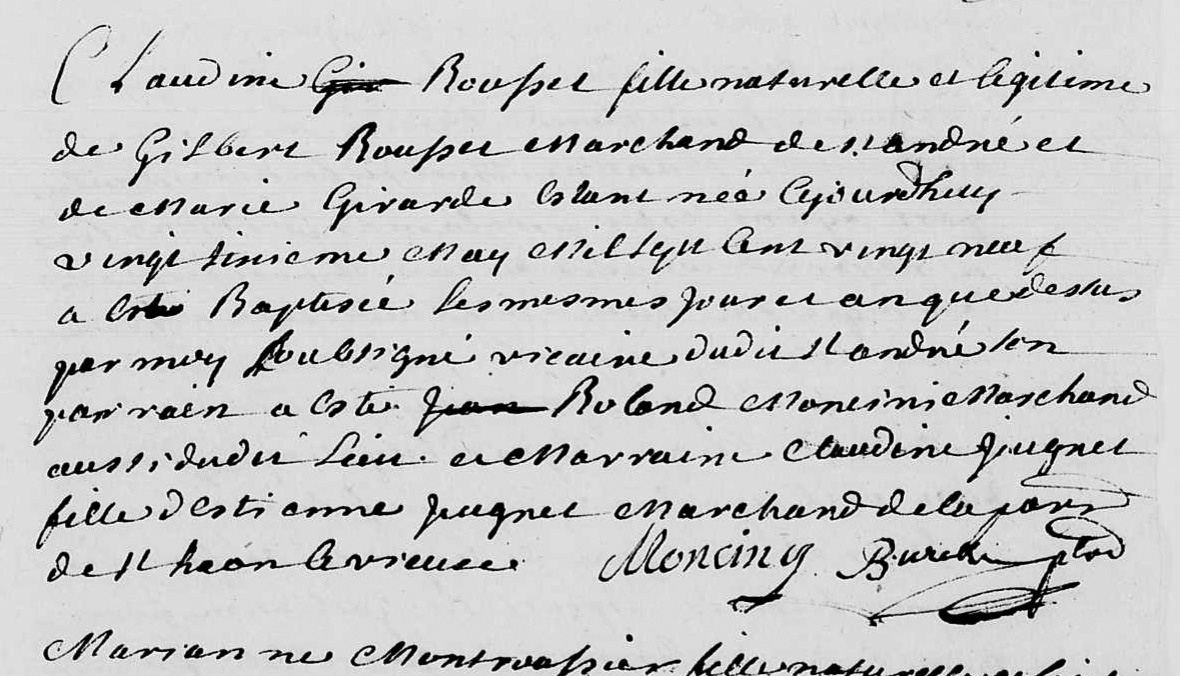 Claudine Gir Rousset fille naturelle et legitime
de Gilbert Rousset Marchand de st andré et
de Marie Girarde Estant née Cejourdhuy
vingt sixieme May Mil sept Cent vingt neuf
a Esté Baptisée Les mesmes jour et an que dessus
par moy soubsigné vicaire dudit st andré son
parrain a esté Jean Roland Moncini Marchand
aussi dudit Lieu et Marraine Claudine Jugnet
fille destienne Jugnet Marchand de la parr
de st haon le vieux
Moncing Burelle
Marianne fille naturelle et